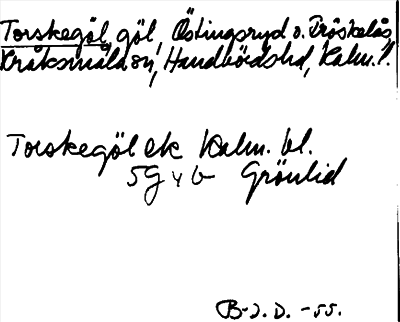 Torskegöl, göl, Östingsryd o. Tröskelås,
Kråksmåla sn, Handbörds hd, Kalm. l.
Torskegöl ek Kalm. bl.
5G y b Grönlid
B-J. D. -55.